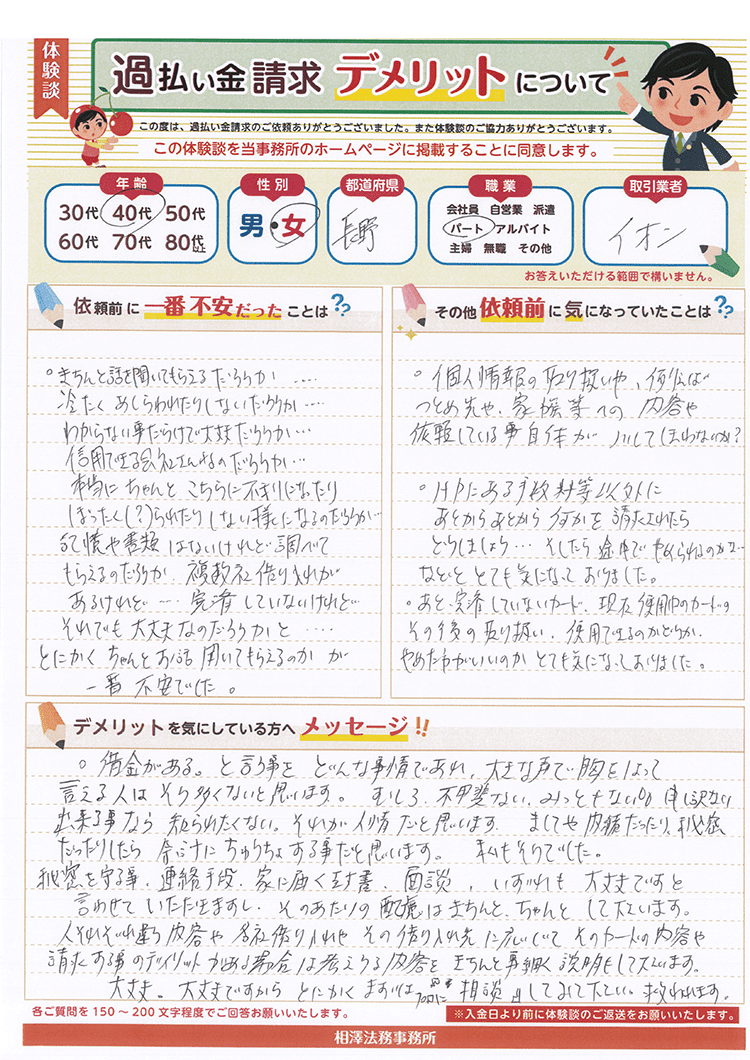 体験談
過払い金請求 デメリットについて
この度は、過払い金請求のご依頼ありがとうございました。また体験談のご協力ありがとうございます。
この体験談を当事務所のホームページに掲載することに同意します。
年齢
30代 40代 50代
60代 70代 80代以上
性別
男・女
都道府県
長野
職業
会社員 自営業 派遣
パート アルバイト
主婦 無職 その他
取引業者
イオン
お答えいただける範囲で構いません。
依頼前に一番不安だったことは??
。きちんと話を聞いてもらえるだろうか‥‥
冷たくあしらわれたりしないだろうか‥‥
わからない事だらけで大丈夫だろうか‥‥
信用できる会社さんなのだろうか‥‥
本当にちゃんとこちらに不利になったり
ぼったくし(?)られたりしない様になるのだろうか‥‥
記憶や書類はないけれど調べて
もらえるのだろうか、複数社借り入れが
あるけれど‥‥完済していないけれど
それでも大丈夫なのだろうかと‥‥
とにかくちゃんとお話聞いてもらえるのかが
一番不安でした。
その他依頼前に気になっていたことは??
。個人情報の取り扱いや、例えば
つとめ先や、家族等への内容や
依頼している事自体がバレてしまわないか?
。HPにある手数料等以外に
あとからあとから何かを請求されたら
どうしましょう‥‥そしたら途中でやめられるのかな‥‥
などととても気になっておりました。
。あと、完済していないカード、現在使用中のカードの
その後の取り扱い、使用できるのかどうか、
やめた方がいいのかとても気になっておりました。
デメリットを気にしている方へメッセージ!!
。借金がある。と言う事をどんな事情であれ、大きな声で胸をはって
言える人はそう多くないと思います。むしろ、不甲斐ない、みっともない 申し訳ない
出来る事なら知られたくない。それが人情だと思います。ましてや内緒だったり、秘密
だったりしたら余計にちゅうちょする事だと思います。私もそうでした。
秘密を守る事、連絡手段、家に届く封書、面談、いずれも大丈夫ですと
言わせていただきますし、そのあたりの配慮はきちんと、ちゃんとして下さいます。
人それぞれ違う内容や各社借り入れやその借り入れ先に応じてそのカードの内容や
請求する事のデメリットがある場合は考えうる内容をきちんと事細く説明をして下さいます。
大丈夫。大丈夫ですからとにかくまずは プロに 相談」してみて下さい。救われます。
各ご質問を150～200文字程度でご回答お願いいたします。
※入金日より前に体験談のご返送をお願いいたします。
相澤法務事務所